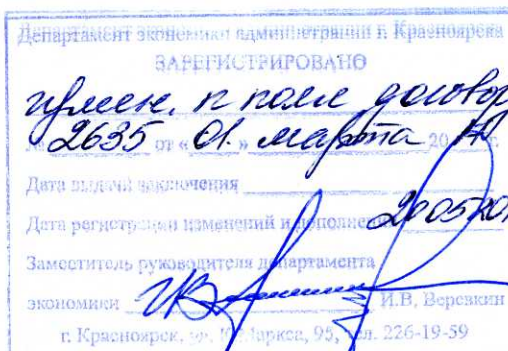 Департамент экономики администрации г. Красноярска
ЗАРЕГИСТРИРОВАНО
измен. к колл договор
№ 2635 от « 01 » марта 20 г.
Дата выдачи заключения
Дата регистрации изменений и дополнений
Заместитель руководителя департамента
экономики И.В. Веревкин
г. Красноярск, ул. К.Маркса, 95, тел. 226-19-59